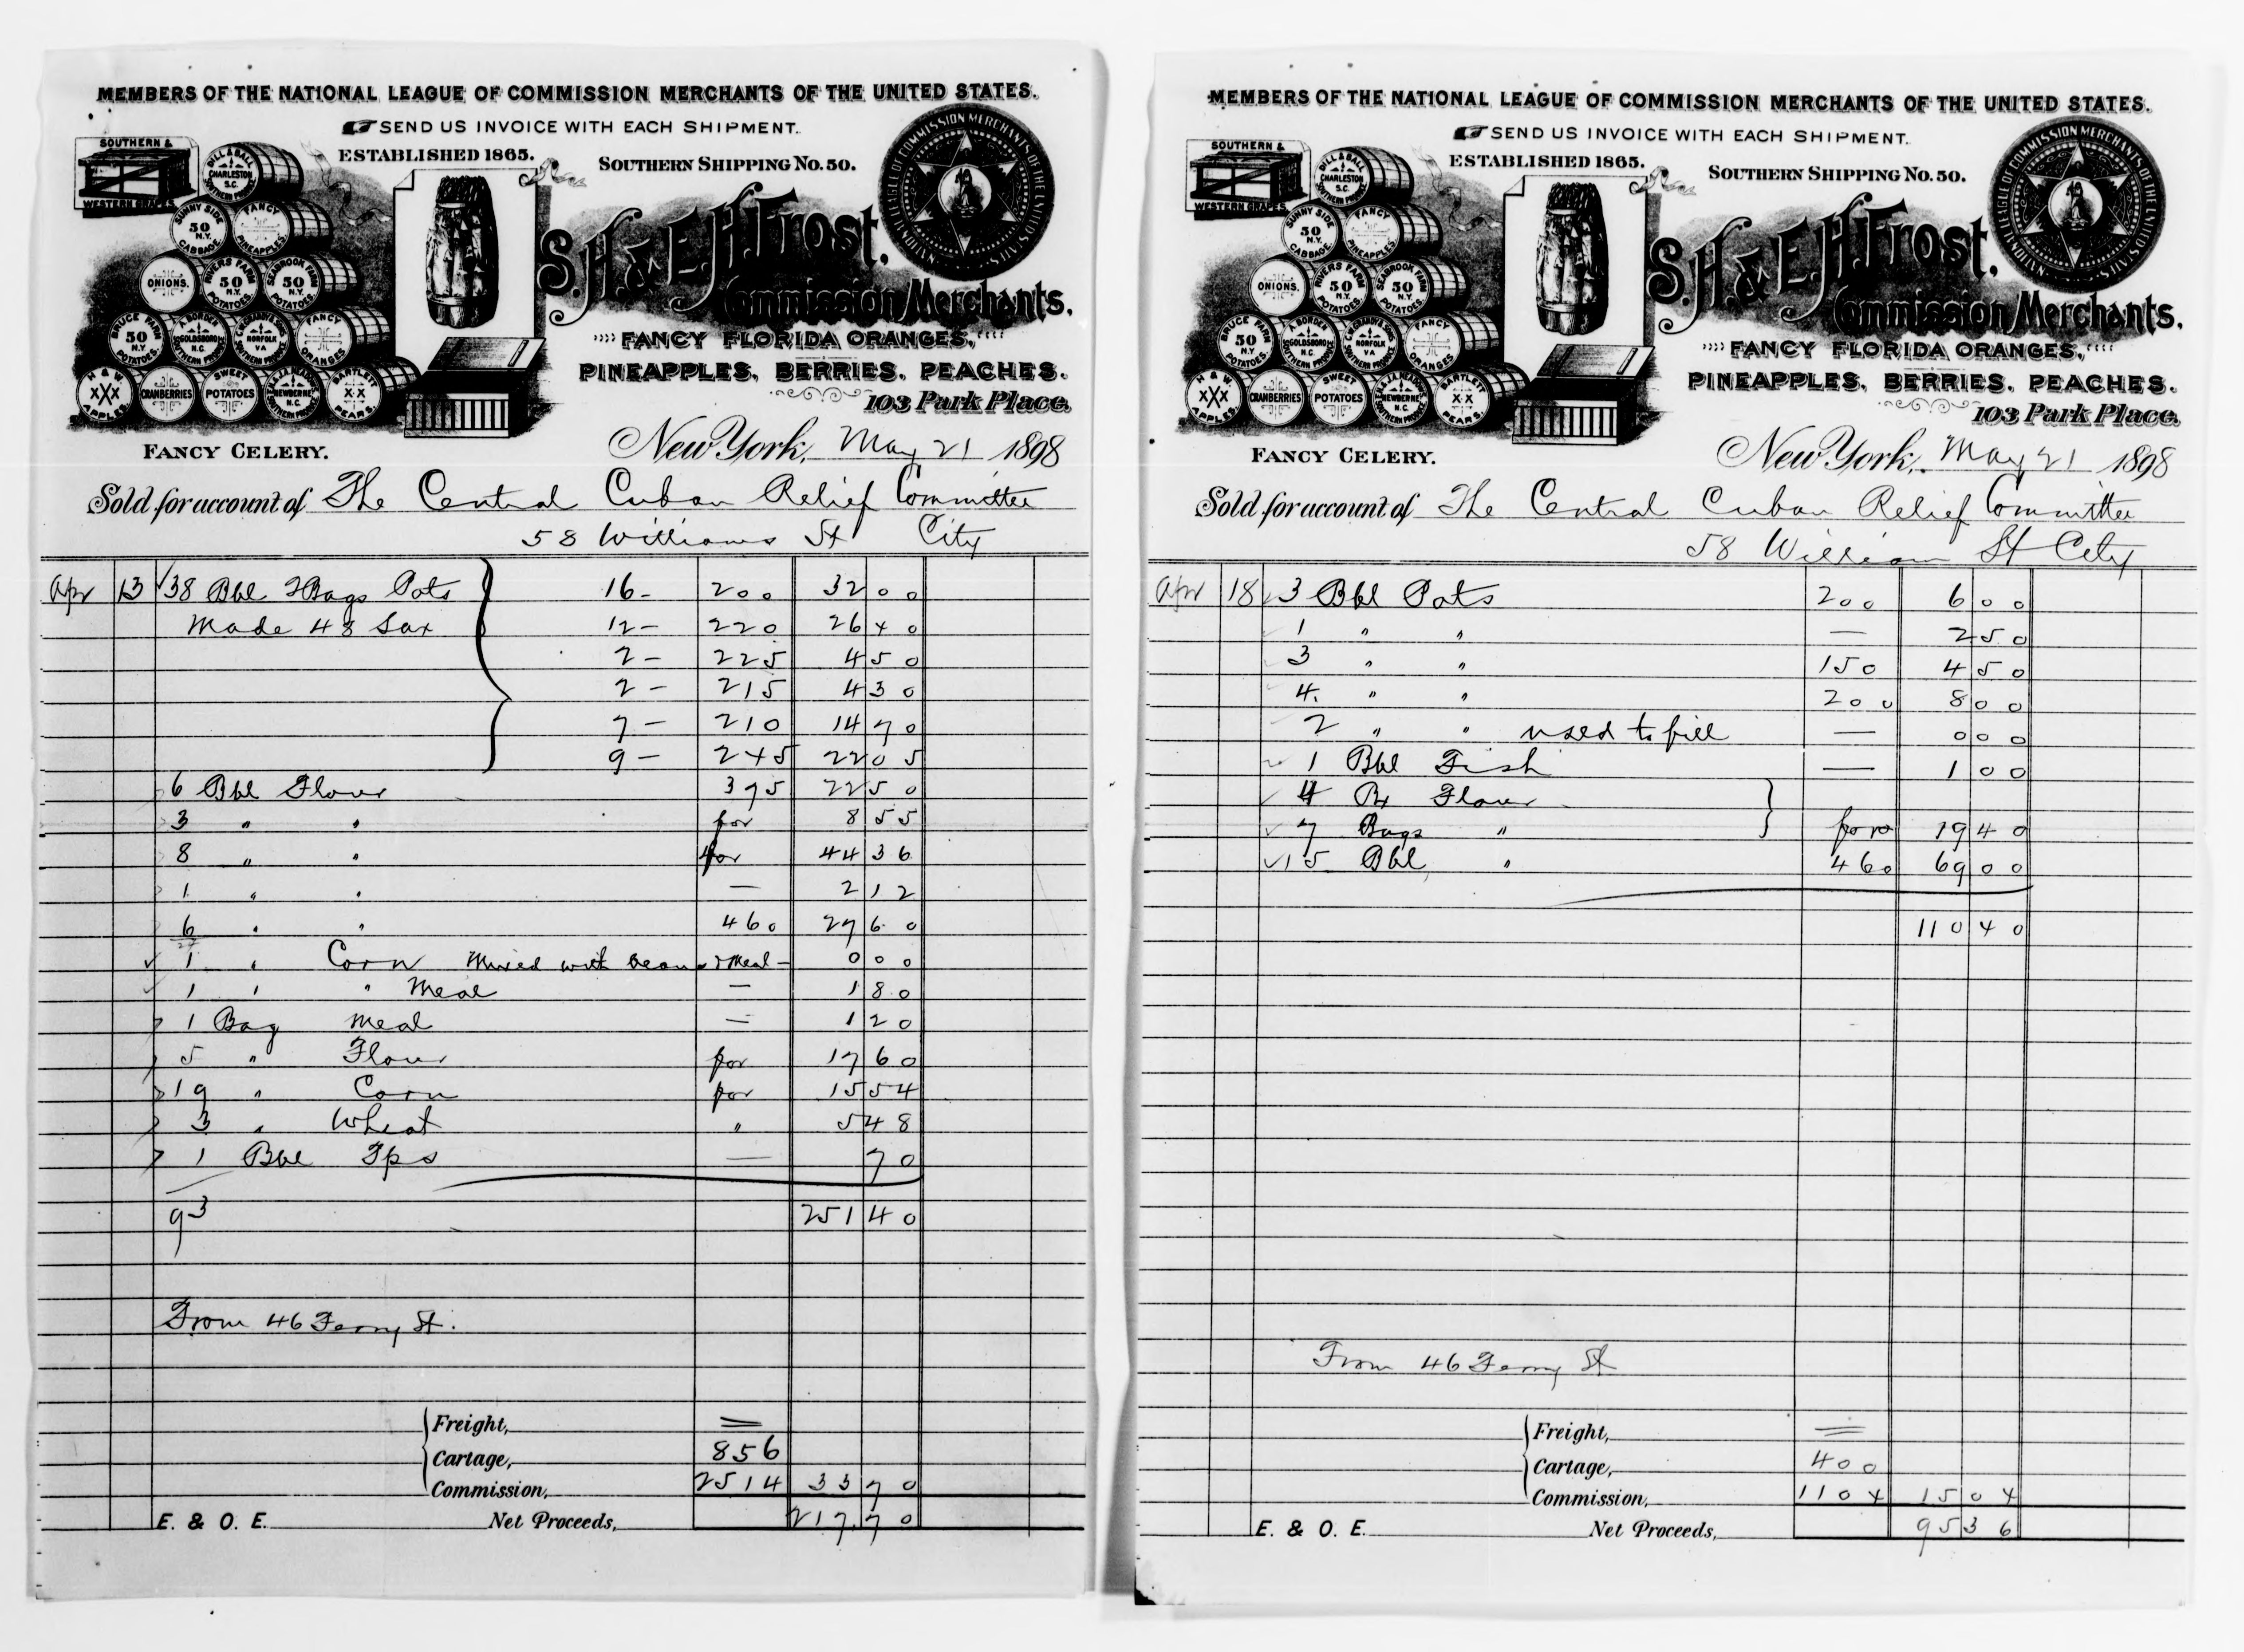 MEMBERS OF THE NATIONAL LEAGUE OF COMMISSION MERCHANTS OF THE UNITED STATES.
SEND US INVOICE WITH EACH SHIPMENT.
ESTABLISHED 1865.
SOUTHERN SHIPPING No. 50.
NATIONAL LEAGUE OF COMMISSION MERCHANTS OF THE UNITED STATES.
SOUTHERN &
WESTERN GRAPES
DILL & BALL CHARLESTON S.C. SOUTHERN PRODUCE
SUNNY SIDE 50 N.Y. CABBAGE
FANCY PINEAPPLES
ONIONS.
RIVERS FARM 50 N.Y. POTATOES
SEABROOK FARM 50 N.Y. POTATOES
BRUCE FARM 50 N.Y. POTATOES
A. BORDEN GOLDSBORO N.C. SOUTHERN PRODUCE
NORFOLK VA SOUTHERN PRODUCE
FANCY ORANGES
H & W. XXX APPLES
CRANBERRIES
SWEET POTATOES
NEWBERNE N.C. SOUTHERN PRODUCE
BARTLETT XX PEARS.
S. H. & E. H. Frost.
Commission Merchants.
FANCY FLORIDA ORANGES,
PINEAPPLES, BERRIES, PEACHES.
103 Park Place,
FANCY CELERY.
New York, May 21 1898
Sold for account of The Central Cuban Relief Committee
58 Williams St City
Apr 13 38 Bbl 2 Bags Pots 16- 200 32 00
Made 48 Sax 12- 220 26 40
2- 225 4 50
2- 215 4 30
7- 210 14 70
9- 245 22 05
6 Bbl Flour 375 22 50
3 " " for 8 55
8 " " for 44 36
1 " " — 2 12
6 " " 460 27 60
27
1 " Corn Mixed with beans & Meal - 0 00
1 " " Meal — 1 80
1 Bag Meal — 1 20
5 " Flour for 17 60
19 " Corn for 15 54
3 " Wheat " 5 48
1 Bbl Tps — 70
93 251 40
From 46 Ferry St.
Freight, =
Cartage, 856
Commission, 2514 33 70
E. & O. E. Net Proceeds, 217.70
MEMBERS OF THE NATIONAL LEAGUE OF COMMISSION MERCHANTS OF THE UNITED STATES.
SEND US INVOICE WITH EACH SHIPMENT.
ESTABLISHED 1865.
SOUTHERN SHIPPING No. 50.
NATIONAL LEAGUE OF COMMISSION MERCHANTS OF THE UNITED STATES.
SOUTHERN &
WESTERN GRAPES
DILL & BALL CHARLESTON S.C. SOUTHERN PRODUCE
SUNNY SIDE 50 N.Y. CABBAGE
FANCY PINEAPPLES
ONIONS.
RIVERS FARM 50 N.Y. POTATOES
SEABROOK FARM 50 N.Y. POTATOES
BRUCE FARM 50 N.Y. POTATOES
A. BORDEN GOLDSBORO N.C. SOUTHERN PRODUCE
NORFOLK VA SOUTHERN PRODUCE
FANCY ORANGES
H & W. XXX APPLES
CRANBERRIES
SWEET POTATOES
NEWBERNE N.C. SOUTHERN PRODUCE
BARTLETT XX PEARS.
S. H. & E. H. Frost.
Commission Merchants.
FANCY FLORIDA ORANGES,
PINEAPPLES, BERRIES, PEACHES.
103 Park Place,
FANCY CELERY.
New York, May 21 1898
Sold for account of The Central Cuban Relief Committee
58 William St City
Apr 18 3 Bbl Pots 200 6 00
1 " " — 2 50
3 " " 150 4 50
4. " " 200 8 00
2 " " used to fill — 0 00
1 Bbl Fish — 1 00
4 Bx Flour
7 Bags " for 19 40
15 Bbl " 460 69 00
110 40
From 46 Ferry St
Freight, =
Cartage, 400
Commission, 1104 15 04
E. & O. E. Net Proceeds, 95 36